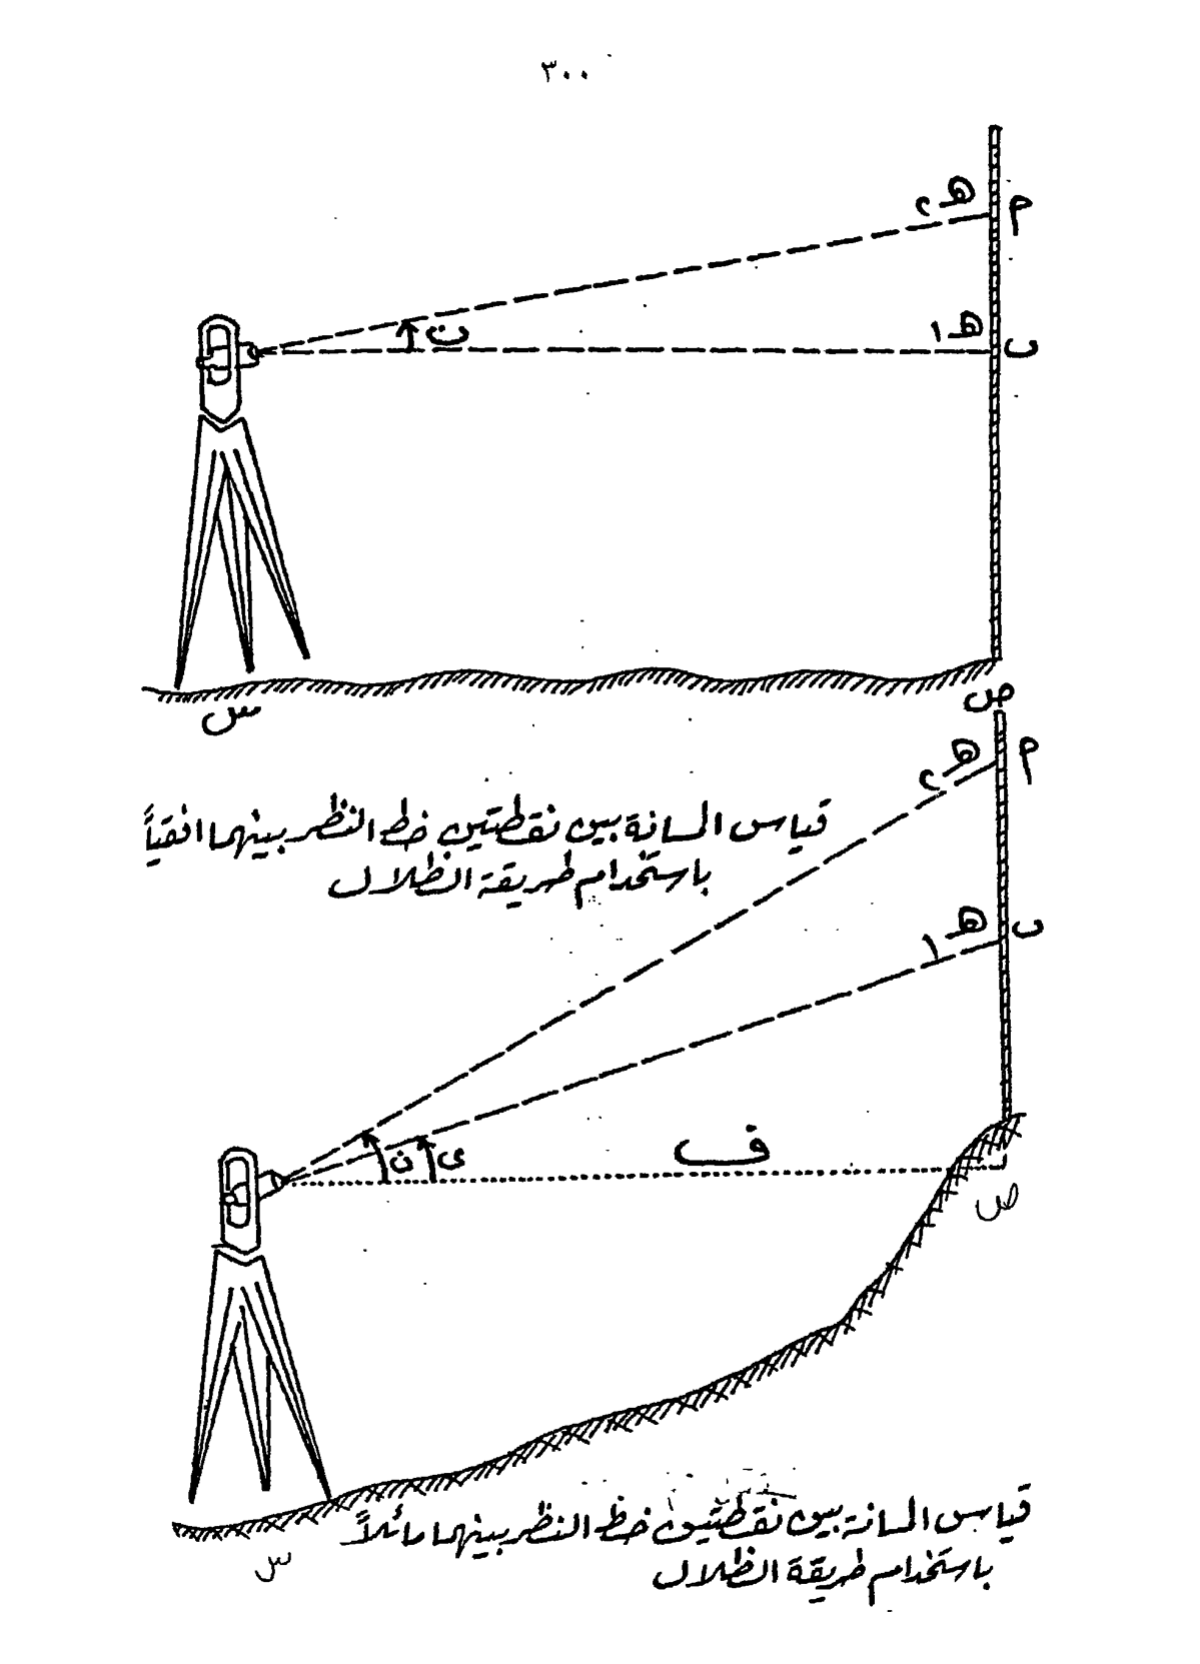 ٣٠٠
هـ٢
م
هـ١
ب
ن
س
ص
قياس المسافة بين نقطتين خط النظر بينهما افقياً
باستخدام طريقة الظلال
هـ٢
م
هـ١
ب
ف
ن
ى
ص
قياس المسافة بين نقطتين خط النظر بينهما مائلاً
باستخدام طريقة الظلال
س